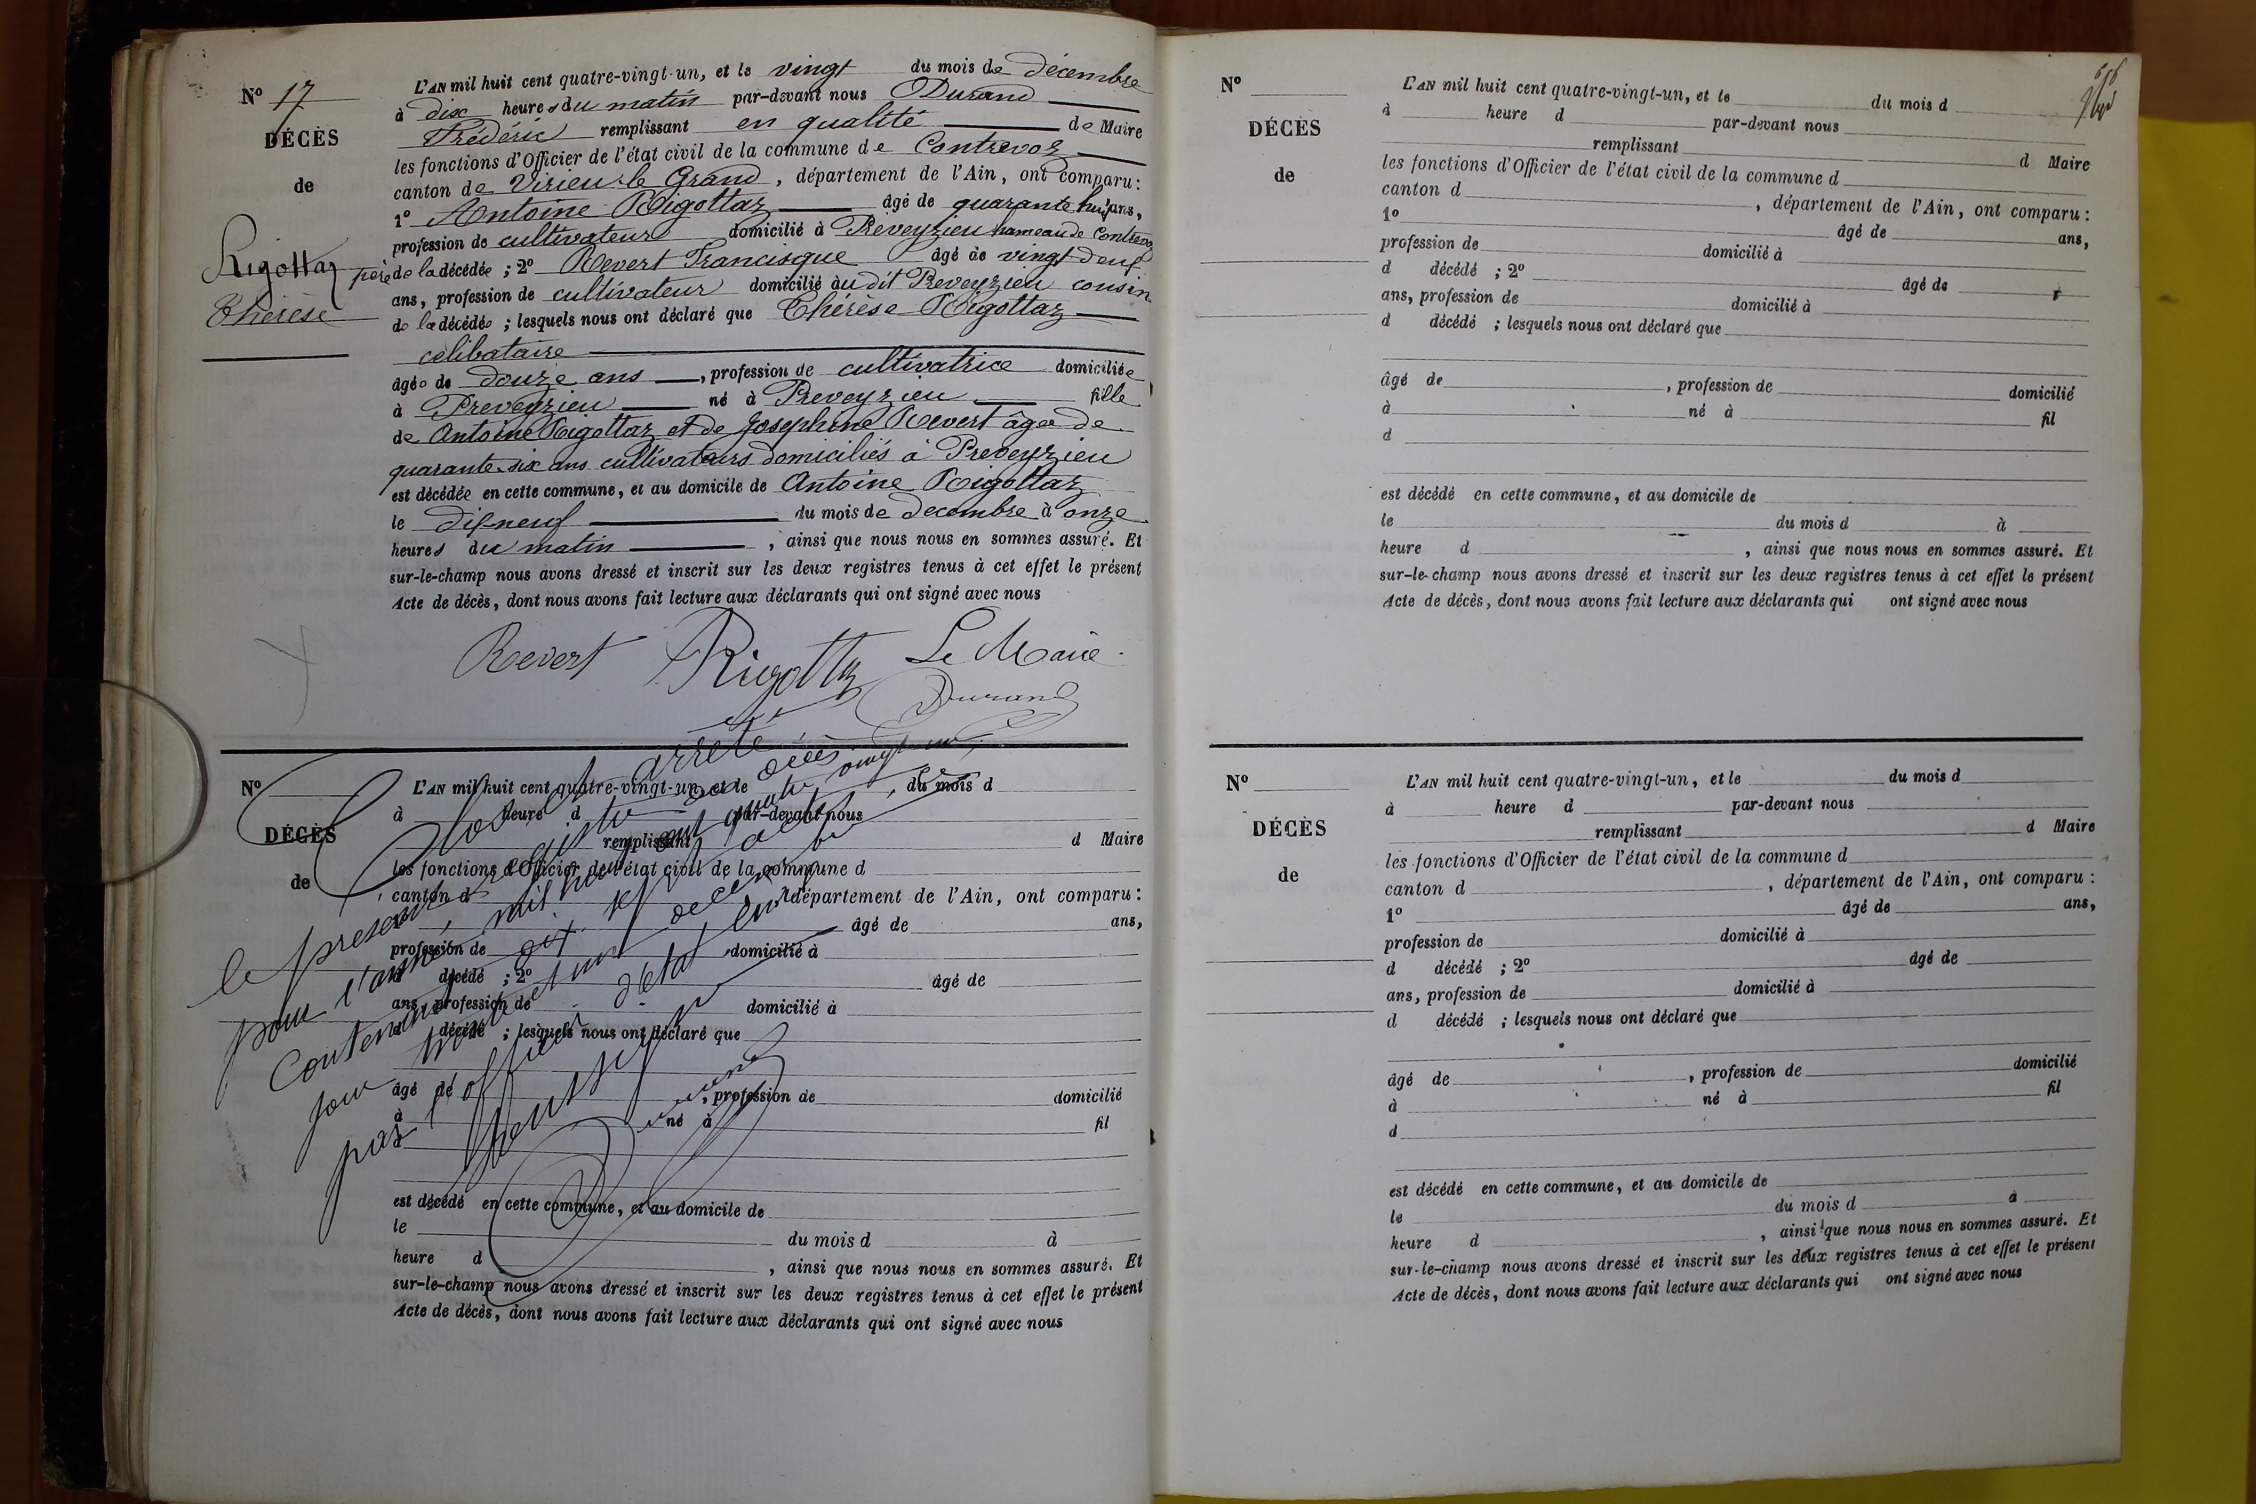 N° 17
DÉCÈS
de
Rigottaz
Thérèse
L'AN mil huit cent quatre-vingt-un, et le vingt du mois de décembre
à dix heures du matin par-devant nous Durand
Frédéric remplissant en qualité de Maire
les fonctions d'Officier de l'état civil de la commune de Contrevoz
canton de Virieu-le Grand, département de l'Ain, ont comparu :
1° Antoine Rigottaz âgé de quarante huit ans,
profession de cultivateur domicilié à Preveyzieu hameau de Contrevoz
père de la décédée ; 2° Revert Francisque âgé de vingt deux
ans, profession de cultivateur domicilié au dit Preveyzieu cousin
de la décédée ; lesquels nous ont déclaré que Thérèse Rigottaz
célibataire
âgée de douze ans, profession de cultivatrice domiciliée
à Preveyzieu né à Preveyzieu fille
de Antoine Rigottaz et de Josephine Revert âgée de
quarante-six ans cultivateurs domiciliés à Preveyzieu
est décédée en cette commune, et au domicile de Antoine Rigottaz
le dix neuf du mois de decembre à onze
heures du matin, ainsi que nous nous en sommes assuré. Et
sur-le-champ nous avons dressé et inscrit sur les deux registres tenus à cet effet le présent
Acte de décès, dont nous avons fait lecture aux déclarants qui ont signé avec nous
Revert Rigottaz Le Maire
Durand
N°
DÉCÈS
de
L'AN mil huit cent quatre-vingt-un, et le du mois d
à heure d par-devant nous
remplissant d Maire
les fonctions d'Officier de l'état civil de la commune d
canton d , département de l'Ain, ont comparu :
âgé de ans,
profession de domicilié à
d décédé ; 2° âgé de
ans, profession de domicilié à
d décédé ; lesquels nous ont déclaré que
âgé de , profession de domicilié
à né à fil
est décédé en cette commune, et au domicile de
le du mois d à
heure d , ainsi que nous nous en sommes assuré. Et
sur-le-champ nous avons dressé et inscrit sur les deux registres tenus à cet effet le présent
Acte de décès, dont nous avons fait lecture aux déclarants qui ont signé avec nous
Clos et arrêté
le présent registre de décès
pour l'année mil huit cent quatre vingt un
contenant dix sept actes, ce
jour trente et un decembre
par l'officier d'état civil
Durand
N°
DÉCÈS
de
L'AN mil huit cent quatre-vingt-un, et le du mois d
à heure d par-devant nous
remplissant d Maire
les fonctions d'Officier de l'état civil de la commune d
canton d , département de l'Ain, ont comparu :
1° âgé de ans,
profession de domicilié à
d décédé ; 2° âgé de
ans, profession de domicilié à
d décédé ; lesquels nous ont déclaré que
âgé de , profession de domicilié
à né à fil
d
est décédé en cette commune, et au domicile de
le du mois d à
heure d , ainsi que nous nous en sommes assuré. Et
sur-le-champ nous avons dressé et inscrit sur les deux registres tenus à cet effet le présent
Acte de décès, dont nous avons fait lecture aux déclarants qui ont signé avec nous
N°
DÉCÈS
de
L'AN mil huit cent quatre-vingt-un, et le du mois d
à heure d par-devant nous
remplissant d Maire
les fonctions d'Officier de l'état civil de la commune d
canton d , département de l'Ain, ont comparu :
1° âgé de ans,
profession de domicilié à
d décédé ; 2° âgé de
ans, profession de domicilié à
d décédé ; lesquels nous ont déclaré que
âgé de , profession de domicilié
à né à fil
d
est décédé en cette commune, et au domicile de
le du mois d à
heure d , ainsi que nous nous en sommes assuré. Et
sur-le-champ nous avons dressé et inscrit sur les deux registres tenus à cet effet le présent
Acte de décès, dont nous avons fait lecture aux déclarants qui ont signé avec nous